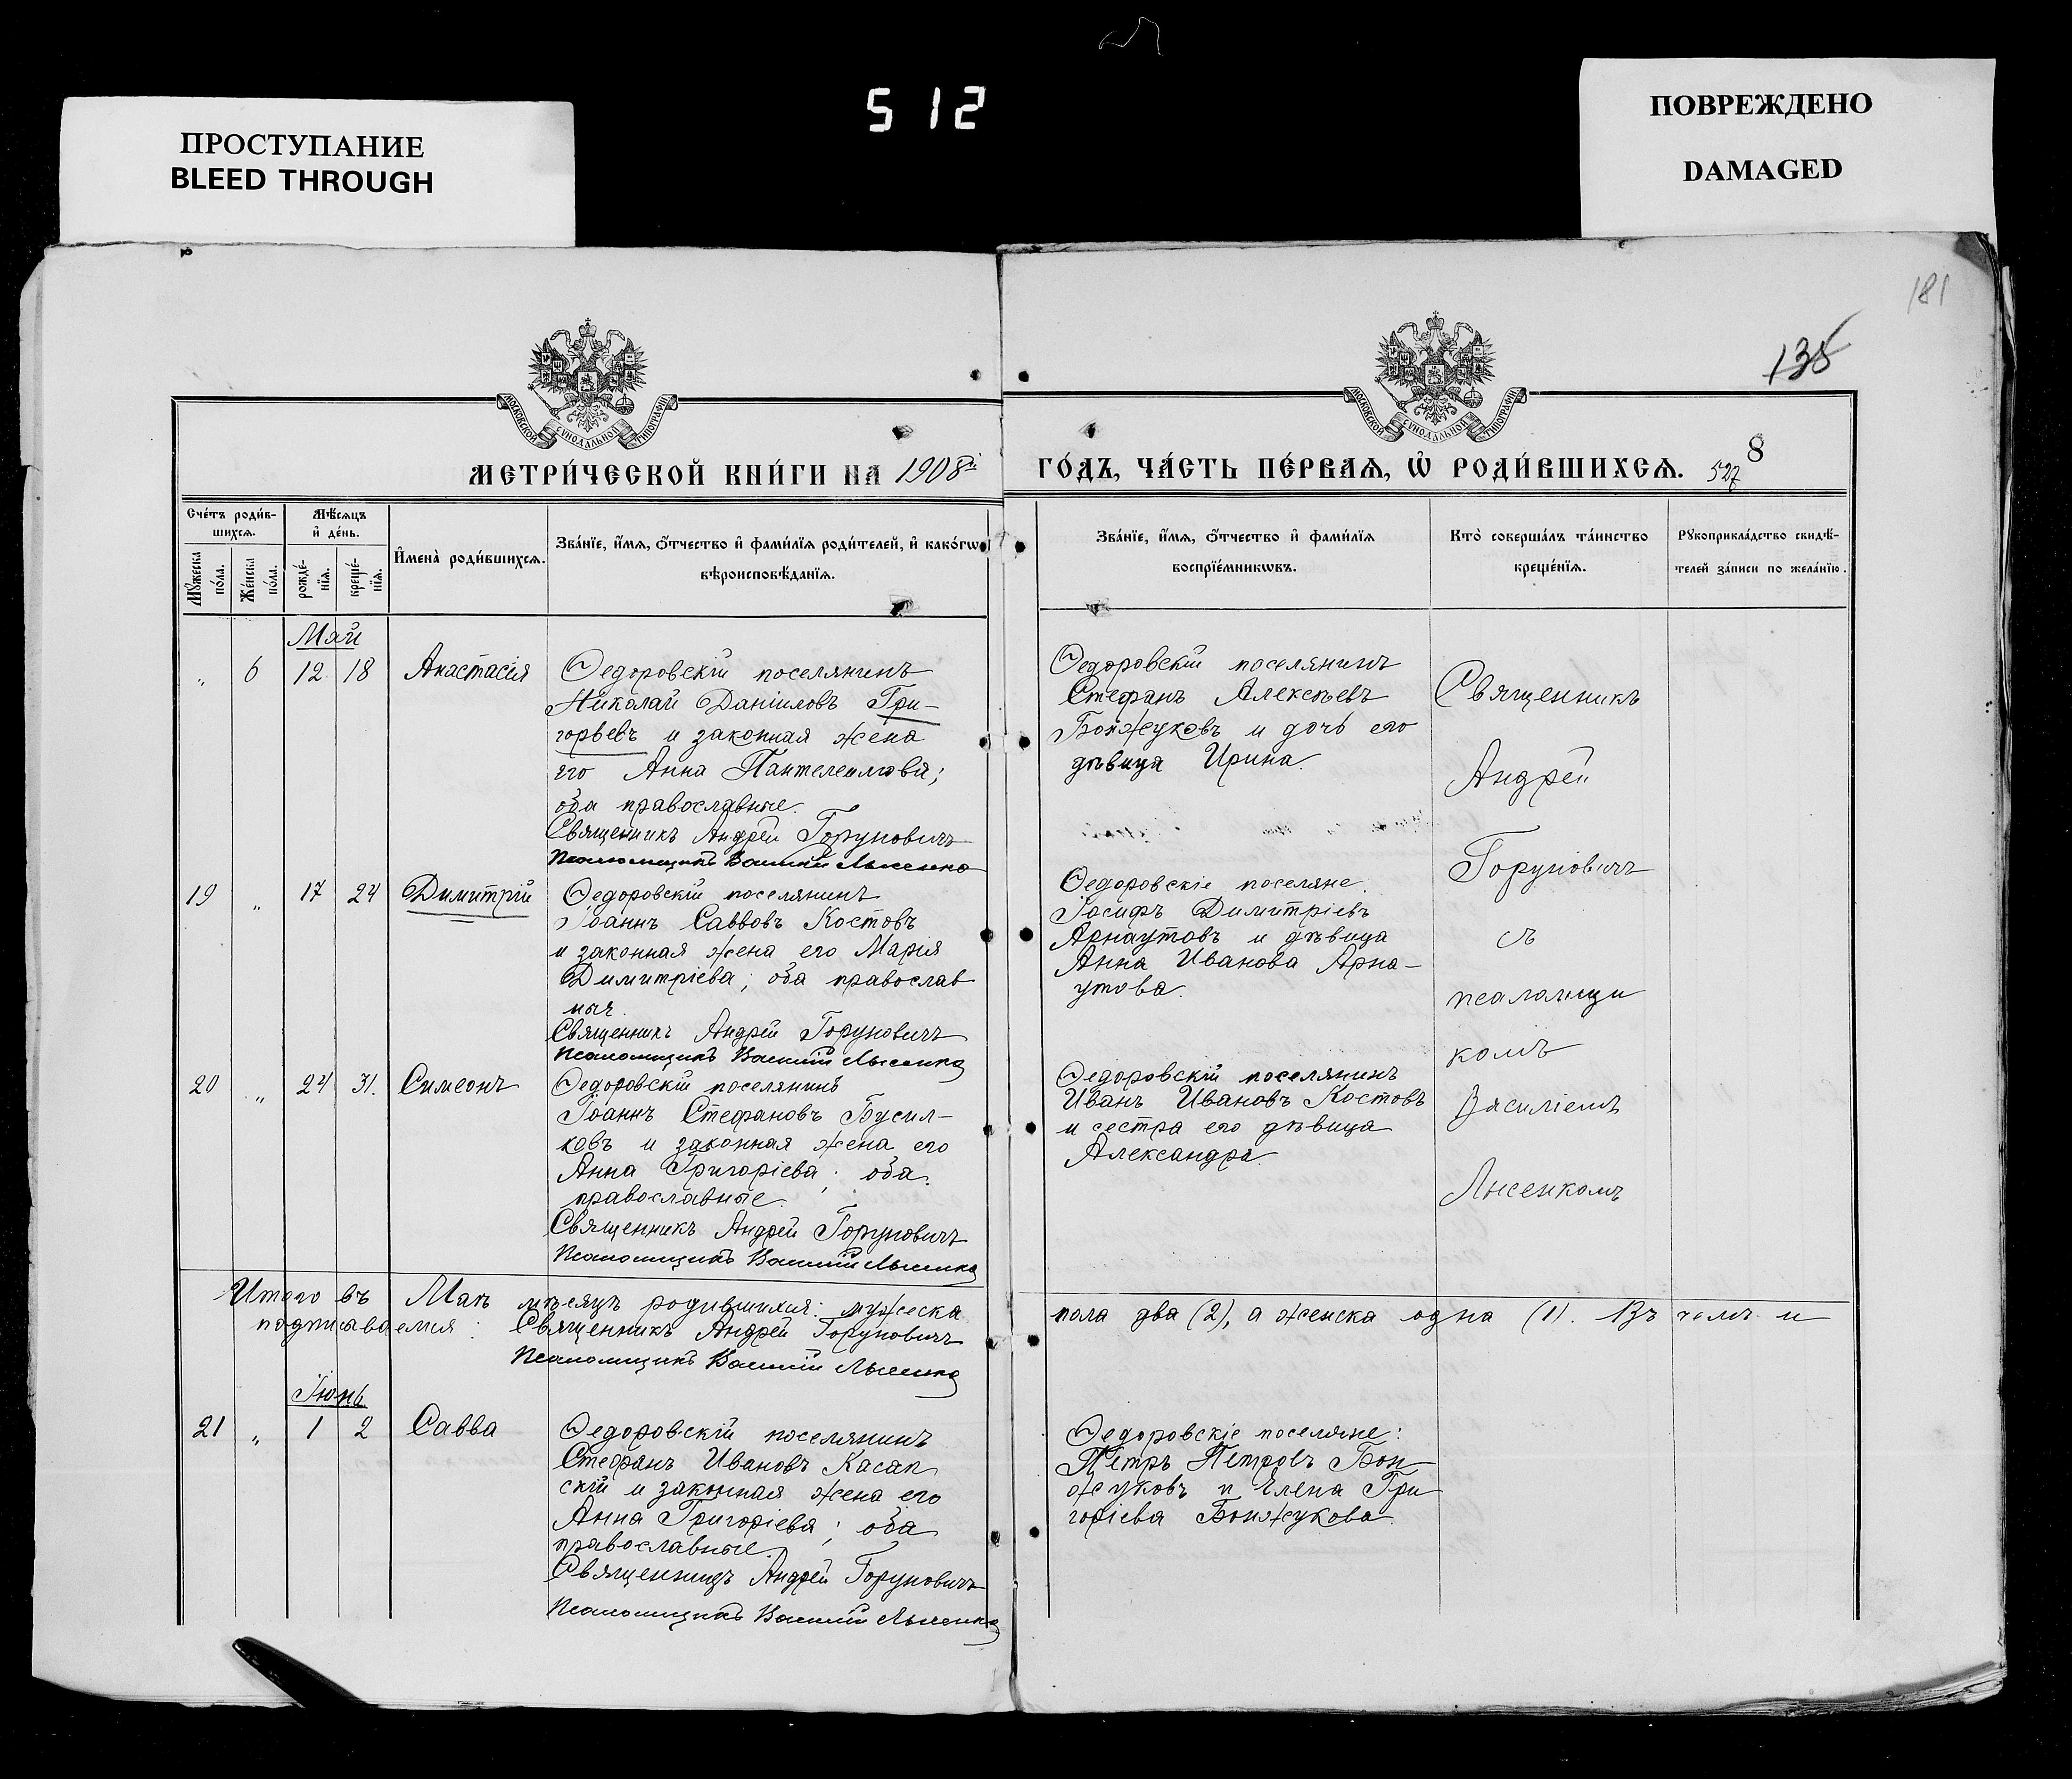 512
ПРОСТУПАНИЕ
BLEED THROUGH
ПОВРЕЖДЕНО
DAMAGED
181
135
МОСКОВСКОЙ СѴНОДАЛЬНОЙ ТИПОГРАФІИ
МОСКОВСКОЙ СѴНОДАЛЬНОЙ ТИПОГРАФІИ
МЕТРИ́ЧЕСКОЙ КНИ́ГИ НА 1908й
ГО́ДЪ, ЧА́СТЬ ПЕ́РВАѦ, Ѽ РОДИ́ВШИХСѦ. 527 8
Сче́тъ роди́в-
шихсѧ.
Мꙋ́жеска по́ла.
Же́нска по́ла.
Мѣ́сѧцъ
и҆ де́нь.
рожде́-
нїѧ.
креще́-
нїѧ.
И҆мена̀ роди́вшихсѧ.
Зва́нїе, и҆́мѧ, ѻ҆́тчество и҆ фами́лїѧ роди́телей, и҆ како́гѡ
вѣроисповѣ́данїѧ.
Зва́нїе, и҆́мѧ, ѻ҆́тчество и҆ фами́лїѧ
воспрїе́мникѡвъ.
Кто̀ соверша́лъ та́инство
креще́нїѧ.
Рꙋкоприкла́дство свидѣ́-
телей за́писи по жела́нїю.
Май
„ 6 12 18 Анастасія
Ѳедоровскій поселянинъ
Николай Даніиловъ Гри-
горьевъ и законная жена
его Анна Пантелеимова;
оба православные.
Священникъ Андрей Горуновичъ
Псаломщикъ Василій Лысенко
Ѳедоровскій поселянинъ
Стефанъ Алексѣевъ
Бонжуковъ и дочь его
дѣвица Ирина.
Священникъ
Андрей
Горуновичъ
съ
псаломщи
комъ
Василіемъ
Лысенкомъ
19 „ 17 24 Димитрій
Ѳедоровскій поселянинъ
Іоаннъ Саввовъ Костовъ
и законная жена его Марія
Димитріева; оба православ
ныя.
Священникъ Андрей Горуновичъ
Псаломщикъ Василій Лысенко
Ѳедоровскіе поселяне.
Іосифъ Димитріевъ
Арнаутовъ и дѣвица
Анна Иванова Арна-
утова.
20 „ 24 31. Симеонъ
Ѳедоровскій поселянинъ
Іоаннъ Стефановъ Бусил-
ковъ и законная жена его
Анна Григоріева; оба
православные.
Священникъ Андрей Горуновичъ
Псаломщикъ Василій Лысенко
Ѳедоровскій поселянинъ
Иванъ Ивановъ Костовъ
и сестра его дѣвица
Александра.
Итого въ Маѣ мѣсяцѣ родившихся: мужеска
пола два (2), а женска одна (1). Въ чемъ и
подписваемся: Священникъ Андрей Горуновичъ
Псаломщикъ Василій Лысенко
Іюнь
21 „ 1 2 Савва
Ѳедоровскій поселянинъ
Стефанъ Ивановъ Касап
скій и законная жена его
Анна Григоріева; оба
православные.
Священникъ Андрей Горуновичъ
Псаломщикъ Василій Лысенко
Ѳедоровскіе поселяне:
Петръ Петровъ Бон
жуковъ и Елена Гри
горіева Бонжукова.